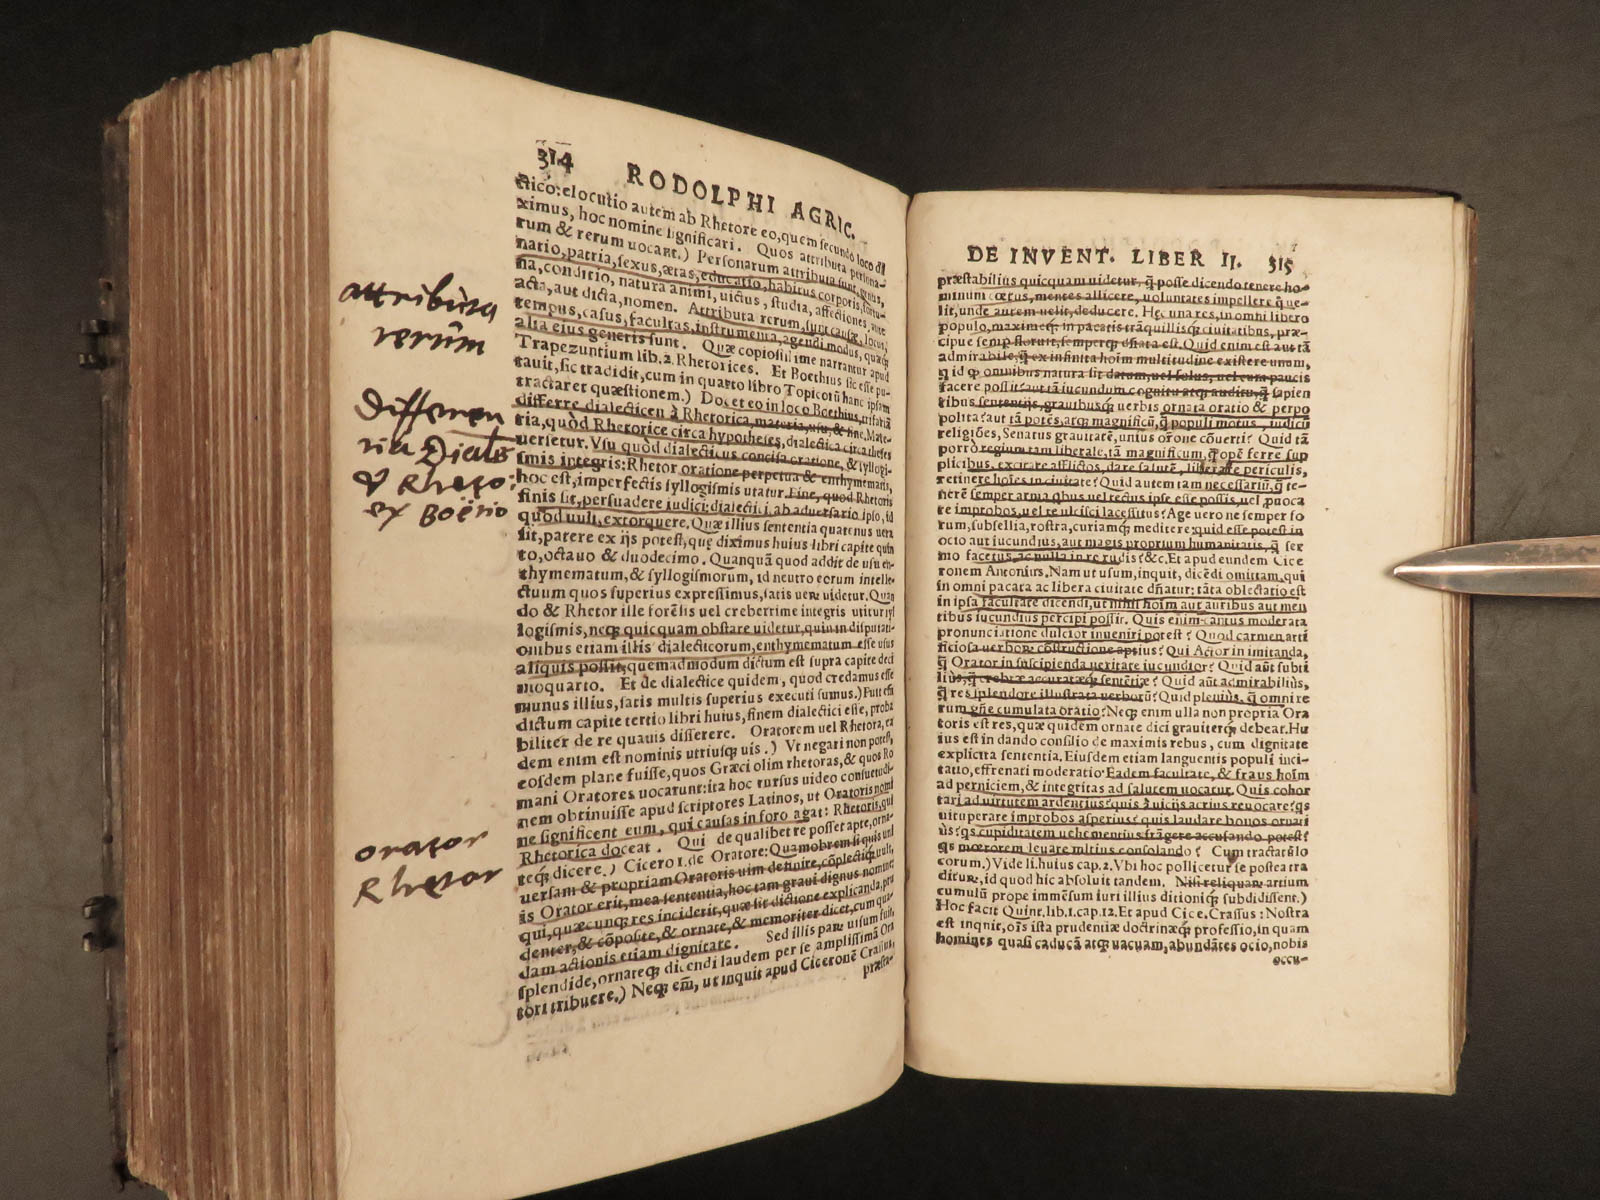 314 RODOLPHI AGRIC.
ctico: elocutio autem ab Rhetore eo, quem secundo loco di
ximus, hoc nomine significari. Quos attributa persona-
rum & rerum uocant.) Personarum attributa sunt, genus,
natio, patria, sexus, ætas, educatio, habitus corporis, fortu-
na, conditio, natura animi, uictus, studia, affectiones, ante
acta, aut dicta, nomen. Attributa rerum, sunt causæ, locus,
tempus, casus, facultas, instrumenta, agendi modus, quæq́;
alia eius generis sunt. Quæ copiosissime narrantur apud
Trapezuntium lib. 2. Rhetorices. Et Boethius sic esse pu-
tauit, sic tradidit, cum in quarto libro Topicorũ hanc ipsam
tractaret quæstionem.) Docet eo in loco Boethius, trifariã
differre dialecticen à Rhetorica, materia, usu, & fine. Mate-
ria, quòd Rhetorice circa hypotheses, dialectica circa theses
uersetur. Vsu quòd dialecticus concisa oratione, & syllogi-
smis integris: Rhetor oratione perpetua & enthymematis,
hoc est, imperfectis syllogismis utatur. Fine, quod Rhetoris
finis sit, persuadere iudici: dialectici, ab aduersario ipso, id
quod uult, extorquere. Quæ illius sententia quatenus uera
sit, patere ex ijs potest, quę diximus huius libri capite quin
to, octauo & duodecimo. Quanquã quod addit de usu en-
thymematum, & syllogismorum, id neutro eorum intelle-
ctuum quos superius expressimus, satis uere uidetur. Quan
do & Rhetor ille forẽsis uel creberrime integris utitur syl
logismis, neq; quicquam obstare uidetur, quin in disputati-
onibus etiam illis dialecticorum, enthymematum esse usus
aliquis possit, quemadmodum dictum est supra capite deci
moquarto. Et de dialectice quidem, quod credamus esse
munus illius, satis multis superius executi sumus.) Fuit em̃
dictum capite tertio libri huius, finem dialectici esse, proba
biliter de re quauis disserere. Oratorem uel Rhetora, ea
dem enim est nominis utriusq; uis.) Vt negari non potest,
eosdem plane fuisse, quos Græci olim rhetoras, & quos Ro
mani Oratores uocarunt: ita hoc rursus uideo consuetudi-
nem obtinuisse apud scriptores Latinos, ut Oratoris nomi
ne significent eum, qui causas in foro agat: Rhetoris, qui
Rhetorica doceat. Qui de qualibet re posset apte, orna-
teq; dicere.) Cicero 1. de Oratore: Quamobrem si quis uni
uersam & propriam Oratoris uim definire, cõplectiq; uult,
is Orator erit, mea sententia, hoc tam graui dignus nomine:
qui, quæcunq; res inciderit, quæ sit dictione explicanda, pru
denter, & cõposite, & ornate, & memoriter dicet, cum qua-
dam actionis etiam dignitate. Sed illis parẽ uisum fuit,
splendide, ornateq; dicendi laudem per se amplissimã Ora
tori tribuere.) Neq; em̃, ut inquit apud Ciceronẽ Crassus,
præsta-
attributa
rerũm
Differen
ria Dial
& Rheto:
ex Boëtio
orator
Rhetor
DE INVENT. LIBER II. 315
præstabilius quicquam uidetur, q̃ posse dicendo tenere ho-
minum cœtus, mentes allicere, uoluntates impellere q̃ ue-
lit, unde autem uelit, deducere. Hęc una res, in omni libero
populo, maximeq; in pacatis trãquillisq; ciuitatibus, præ-
cipue semp floruit, semperq; dñata est. Quid enim est aut tã
admirabile, q̃ ex infinita hoĩm multitudine existere unum,
q id qđ omnibus natura sit datum, uel solus, uel cum paucis
facere possit? aut tã iucundum cognitu atq; auditu, q̃ sapien
tibus sententijs, grauibusq; uerbis ornata oratio & perpo
polita? aut tã potẽs, atq; magnificũ, q̃ populi motus, iudicũ
religiões, Senatus grauitatẽ, unius orõne cõuerti? Quid tã
porrò regium tam liberale, tã magnificum, q̃ opẽ ferre sup
plicibus, excitare afflictos, dare salutẽ, liberare periculis,
retinere hoĩes in ciuitate? Quid autem tam necessariũ, q̃ te-
nere semper arma qbus uel tectus ipse esse possis, uel puoca
re improbos, uel te ulcisci lacessitus? Age uero ne semper fo
rum, subsellia, rostra, curiamq; meditere: quid esse potest in
ocio aut iucundius, aut magis proprium humanitatis, q̃ ser
mo facetus, ac nulla in re rudis? &c. Et apud eundem Cice
ronem Antonius. Nam ut usum, inquit, dicẽdi omittam, qui
in omni pacata ac libera ciuitate dñatur: tãta oblectatio est
in ipsa facultate dicendi, ut nihil hoĩm aut auribus aut men
tibus iucundius percipi possit. Quis enim cantus moderata
pronunciatione dulcior inueniri potest? Quod carmen arti
ficiosa uerborũ cõstructione aptius? Qui Actor in imitanda,
q̃ Orator in suscipienda ueritate iucundior? Quid aũt subti
lius, q̃ crebræ accuratæq; sentẽtiæ? Quid aũt admirabilius,
q̃ res splendore illustrata uerborũ? Quid plenius, q̃ omni re
rum gñe cumulata oratio? Neq; enim ulla non propria Ora
toris est res, quæ quidem ornate dici grauiterq; debeat. Hu
ius est in dando consilio de maximis rebus, cum dignitate
explicita sententia. Eiusdem etiam languentis populi inci-
tatio, effrenati moderatio. Eadem facultate, & fraus hoĩm
ad perniciem, & integritas ad salutem uocatur. Quis cohor
tari ad uirtutem ardentius? quis à uicijs acrius reuocare? qs
uituperare improbos asperius? quis laudare bonos ornati
us? qs cupiditatem uehementius frãgere accusando potest?
qs mœrorem leuare mitius consolando? Cum tractatũlo
corum.) Vide li. huius cap. 2. Vbi hoc pollicetur se postea tra
diturũ, id quod hic absoluit tandem. Nisi reliquarũ artium
cumulũ prope immẽsum illius ditioniq; subdidissent.)
Hoc facit Quint. lib. 1. cap. 12. Et apud Cice. Crassus: Nostra
est inqnit, oĩs ista prudentiæ doctrinæq; professio, in quam
homines quasi caducã atq; uacuam, abundãtes ocio, nobis
occu-